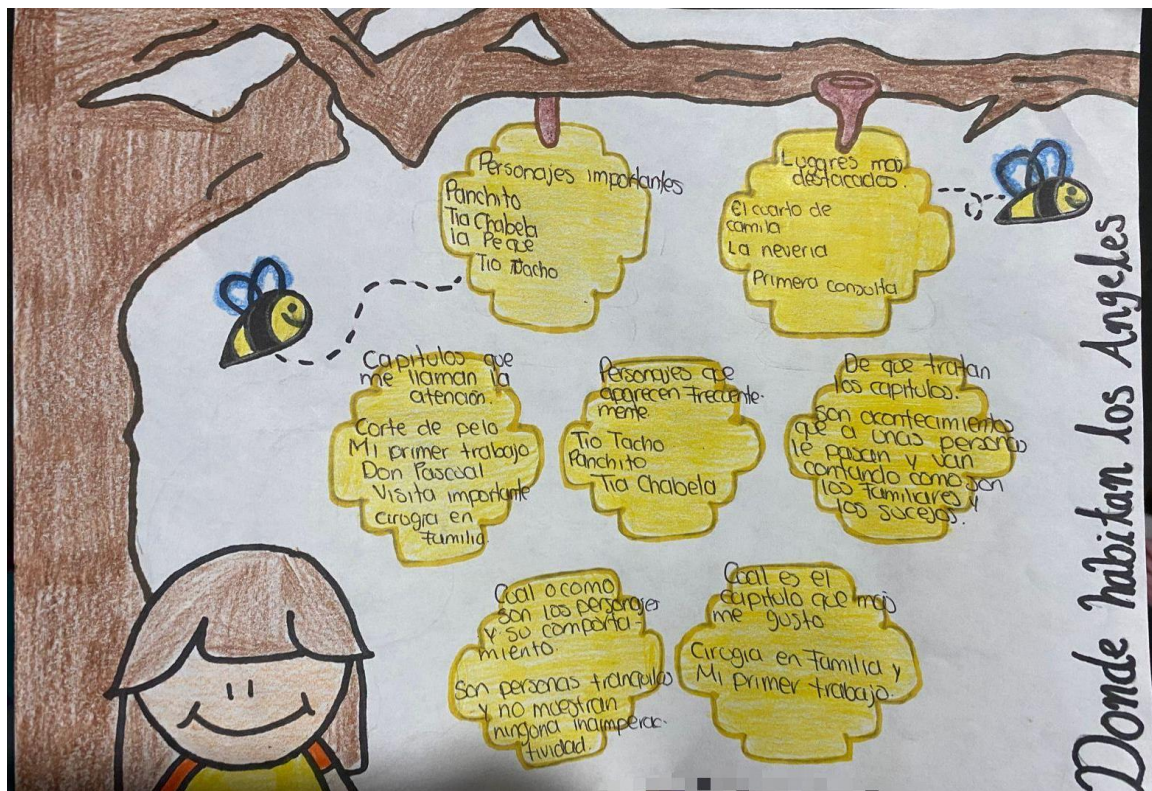 Personajes importantes
Panchito
Tia Chabela
la Peque
Tio Tacho
Lugares mas
destacados.
El cuarto de
camila
La neveria
Primera consulta
Capitulos que
me llaman la
atención.
Corte de pelo
Mi primer trabajo
Don Pascual
Visita importante
cirugia en
familia.
Personajes que
aparecen frecuente-
mente.
Tio Tacho
Panchito
Tia Chabela
De que tratan
los capitulos.
Son acontecimientos
que a unas personas
le pasan y van
contando como son
los familiares y
los sucejos.
Cual o como
son los personajes
y su comporta-
miento.
Son personas tranquilas
y no muestran
ninguna inaimperac-
tividad.
Cual es el
capitulo que mas
me gusto
Cirugia en Familia y
Mi primer trabajo.
Donde habitan los Angeles